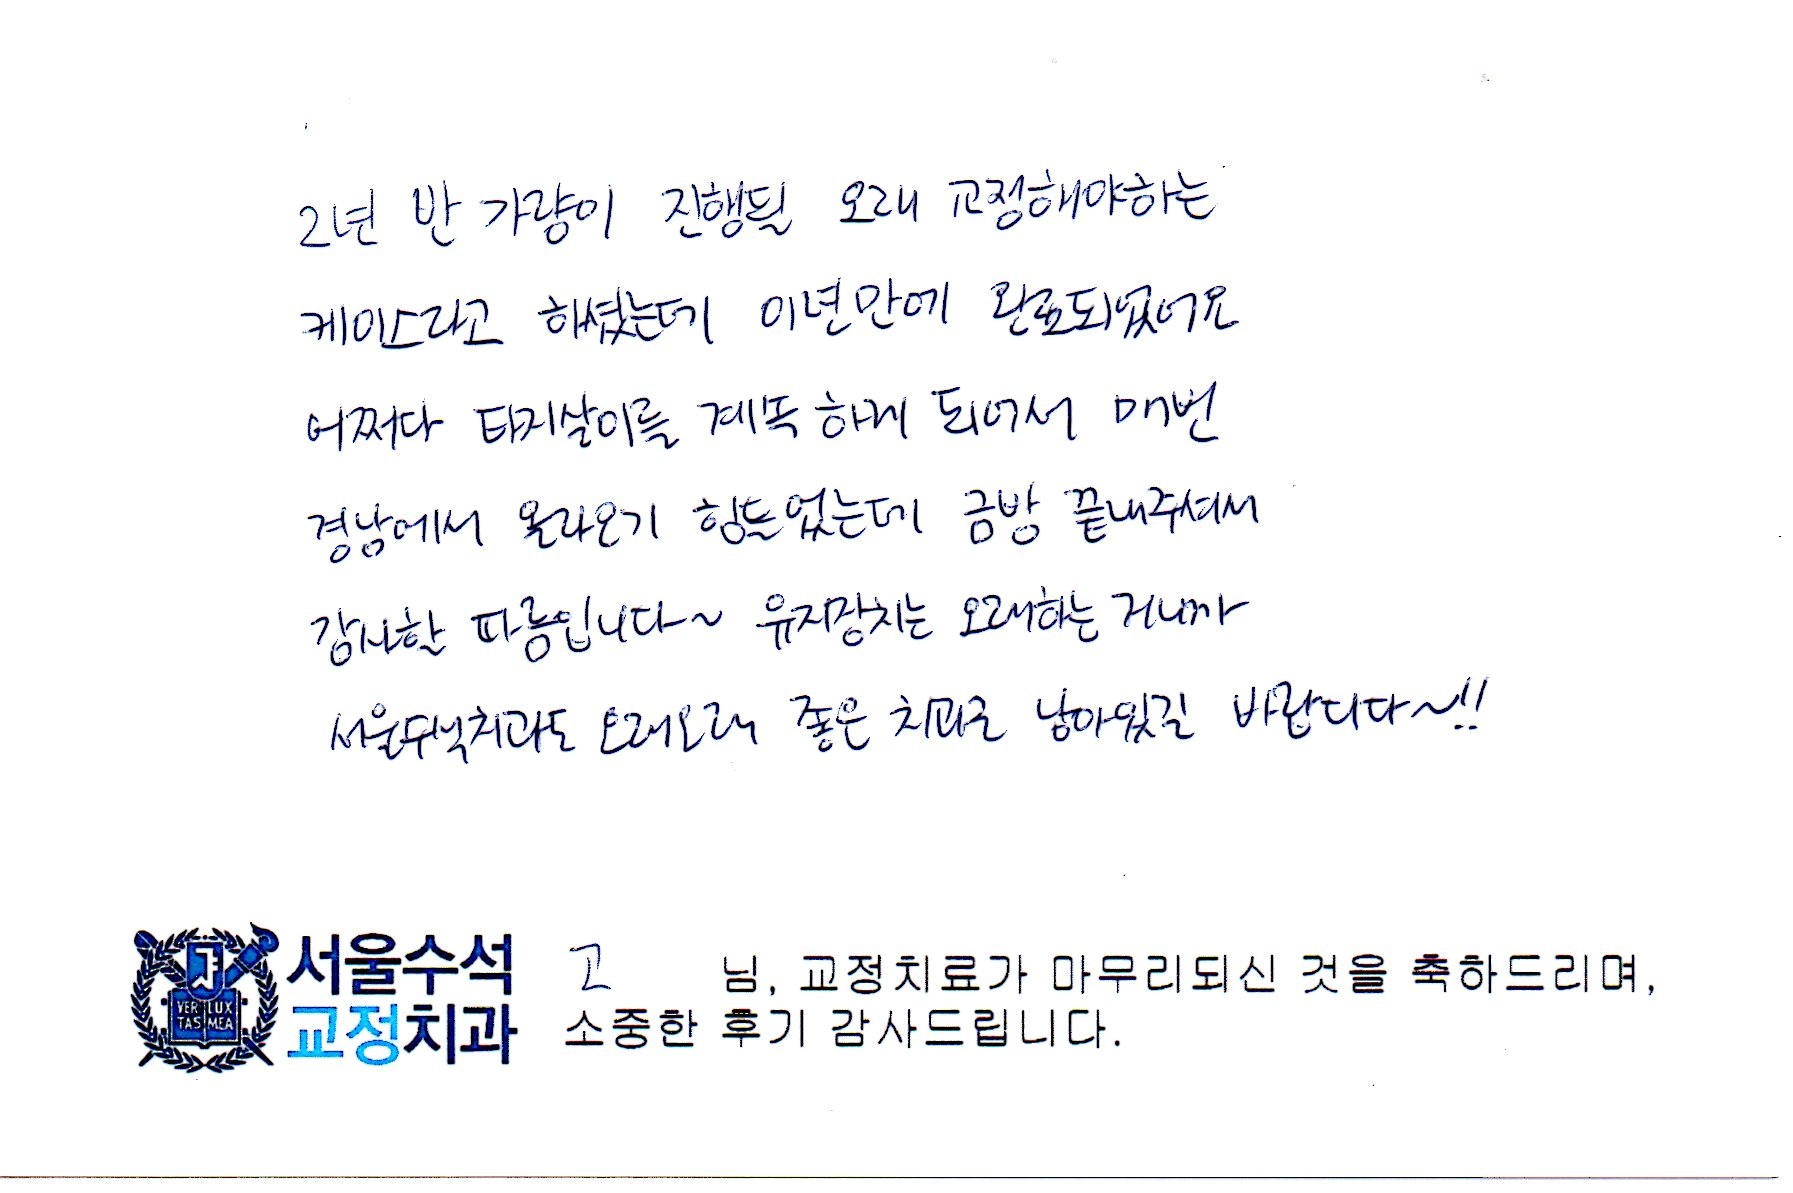 2년 반 가량이 진행될 오래 교정해야하는
케이스라고 하셨는데 이년만에 완료되었어요
어쩌다 타지살이를 계속 하게 되어서 매번
경남에서 올라오기 힘들었는데 금방 끝내주셔서
감사할 따름입니다~ 유지장치는 오래하는 거니까
서울수석치과도 오래오래 좋은 치과로 남아있길 바랍니다~!!
서울수석
교정치과
VERI LUX
TAS MEA
고 님, 교정치료가 마무리되신 것을 축하드리며,
소중한 후기 감사드립니다.